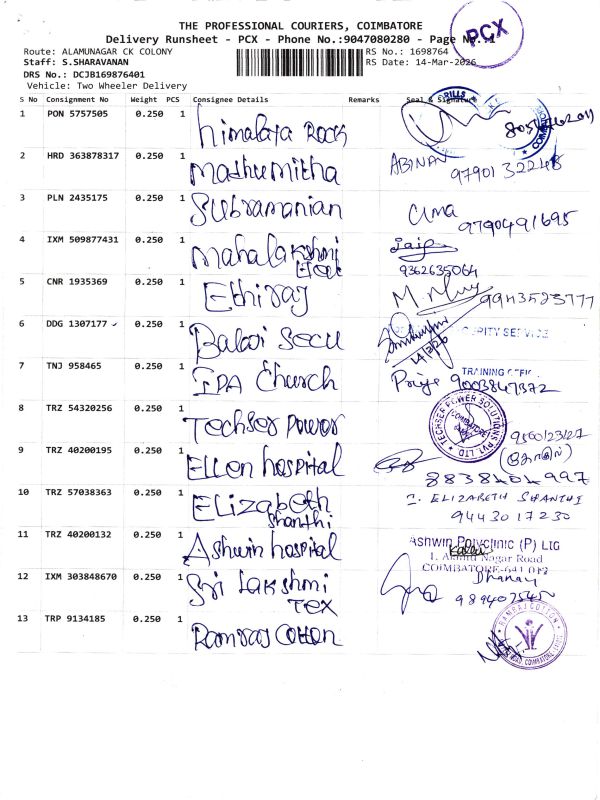 THE PROFESSIONAL COURIERS, COIMBATORE
Delivery Runsheet - PCX - Phone No.:9047080280 - Page No.:1
PCX
Route: ALAMUNAGAR CK COLONY
RS No.: 1698764
Staff: S.SHARAVANAN
RS Date: 14-Mar-2026
DRS No.: DCJB169876401
Vehicle: Two Wheeler Delivery
S No Consignment No Weight PCS Consignee Details Remarks Seal & Signature
1 PON 5757505 0.250 1 Himalaya Rock
2 HRD 363878317 0.250 1 Madhumitha ABINAN 9790132248
3 PLN 2435175 0.250 1 Subramanian Uma 9790491695
4 IXM 509877431 0.250 1 Mahalakshmi 9362635064
5 CNR 1935369 0.250 1 Ethiraj 9943523777
6 DDG 1307177 0.250 1 Balaji Secu 14/3/26
7 TNJ 958465 0.250 1 IPA Church TRAINING Priya 9003847372
8 TRZ 54320256 0.250 1 Techser Power TECHSER POWER SOLUTIONS PVT LTD COIMBATORE
9 TRZ 40200195 0.250 1 Ellen hospital 8838404997
10 TRZ 57038363 0.250 1 Elizabeth Shanthi ELIZABETH SHANTHI 9443017230
11 TRZ 40200132 0.250 1 Ashwin hospital Ashwin Polyclinic (P) LTG
1, Alamu Nagar Road
COIMBATORE-641 012
12 IXM 303848670 0.250 1 Sri Lakshmi Tex Dhanay
13 TRP 9134185 0.250 1 Ramraj Cotton RAMRAJ COTTON